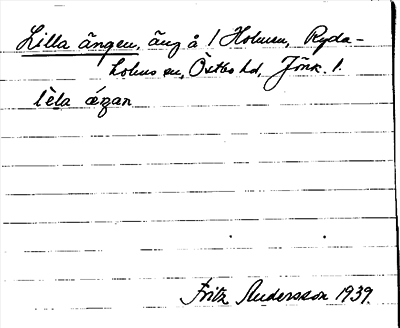 Lilla ängen, äng å 1 Holmen, Ryda-
holms sn, Östbo hd, Jönk. l.
lèla ǽŋan
Fritz Andersson 1939.